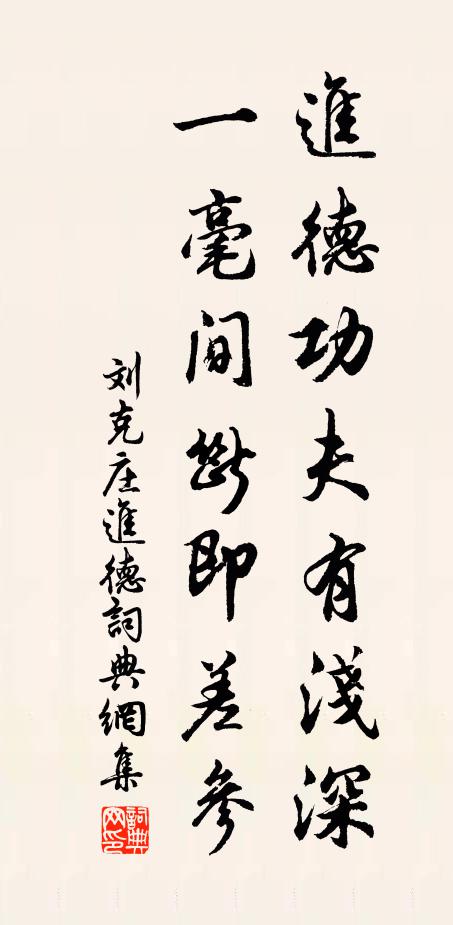 進德功夫有淺深
一毫間斷即差參
刘克庄進德詞典網集
詞典网印